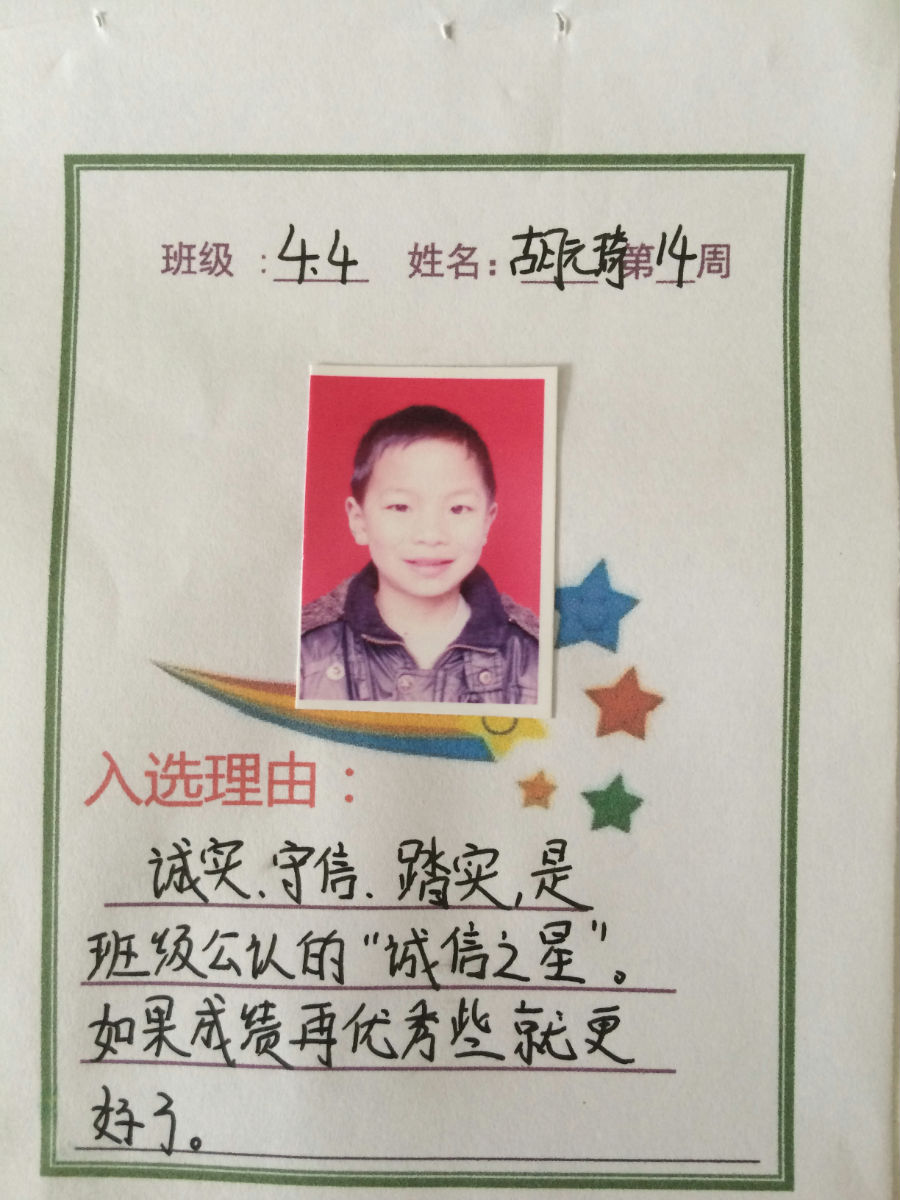 班级：4.4 姓名：胡元琦第14周
入选理由：
诚实、守信、踏实，是
班级公认的“诚信之星”。
如果成绩再优秀些就更
好了。